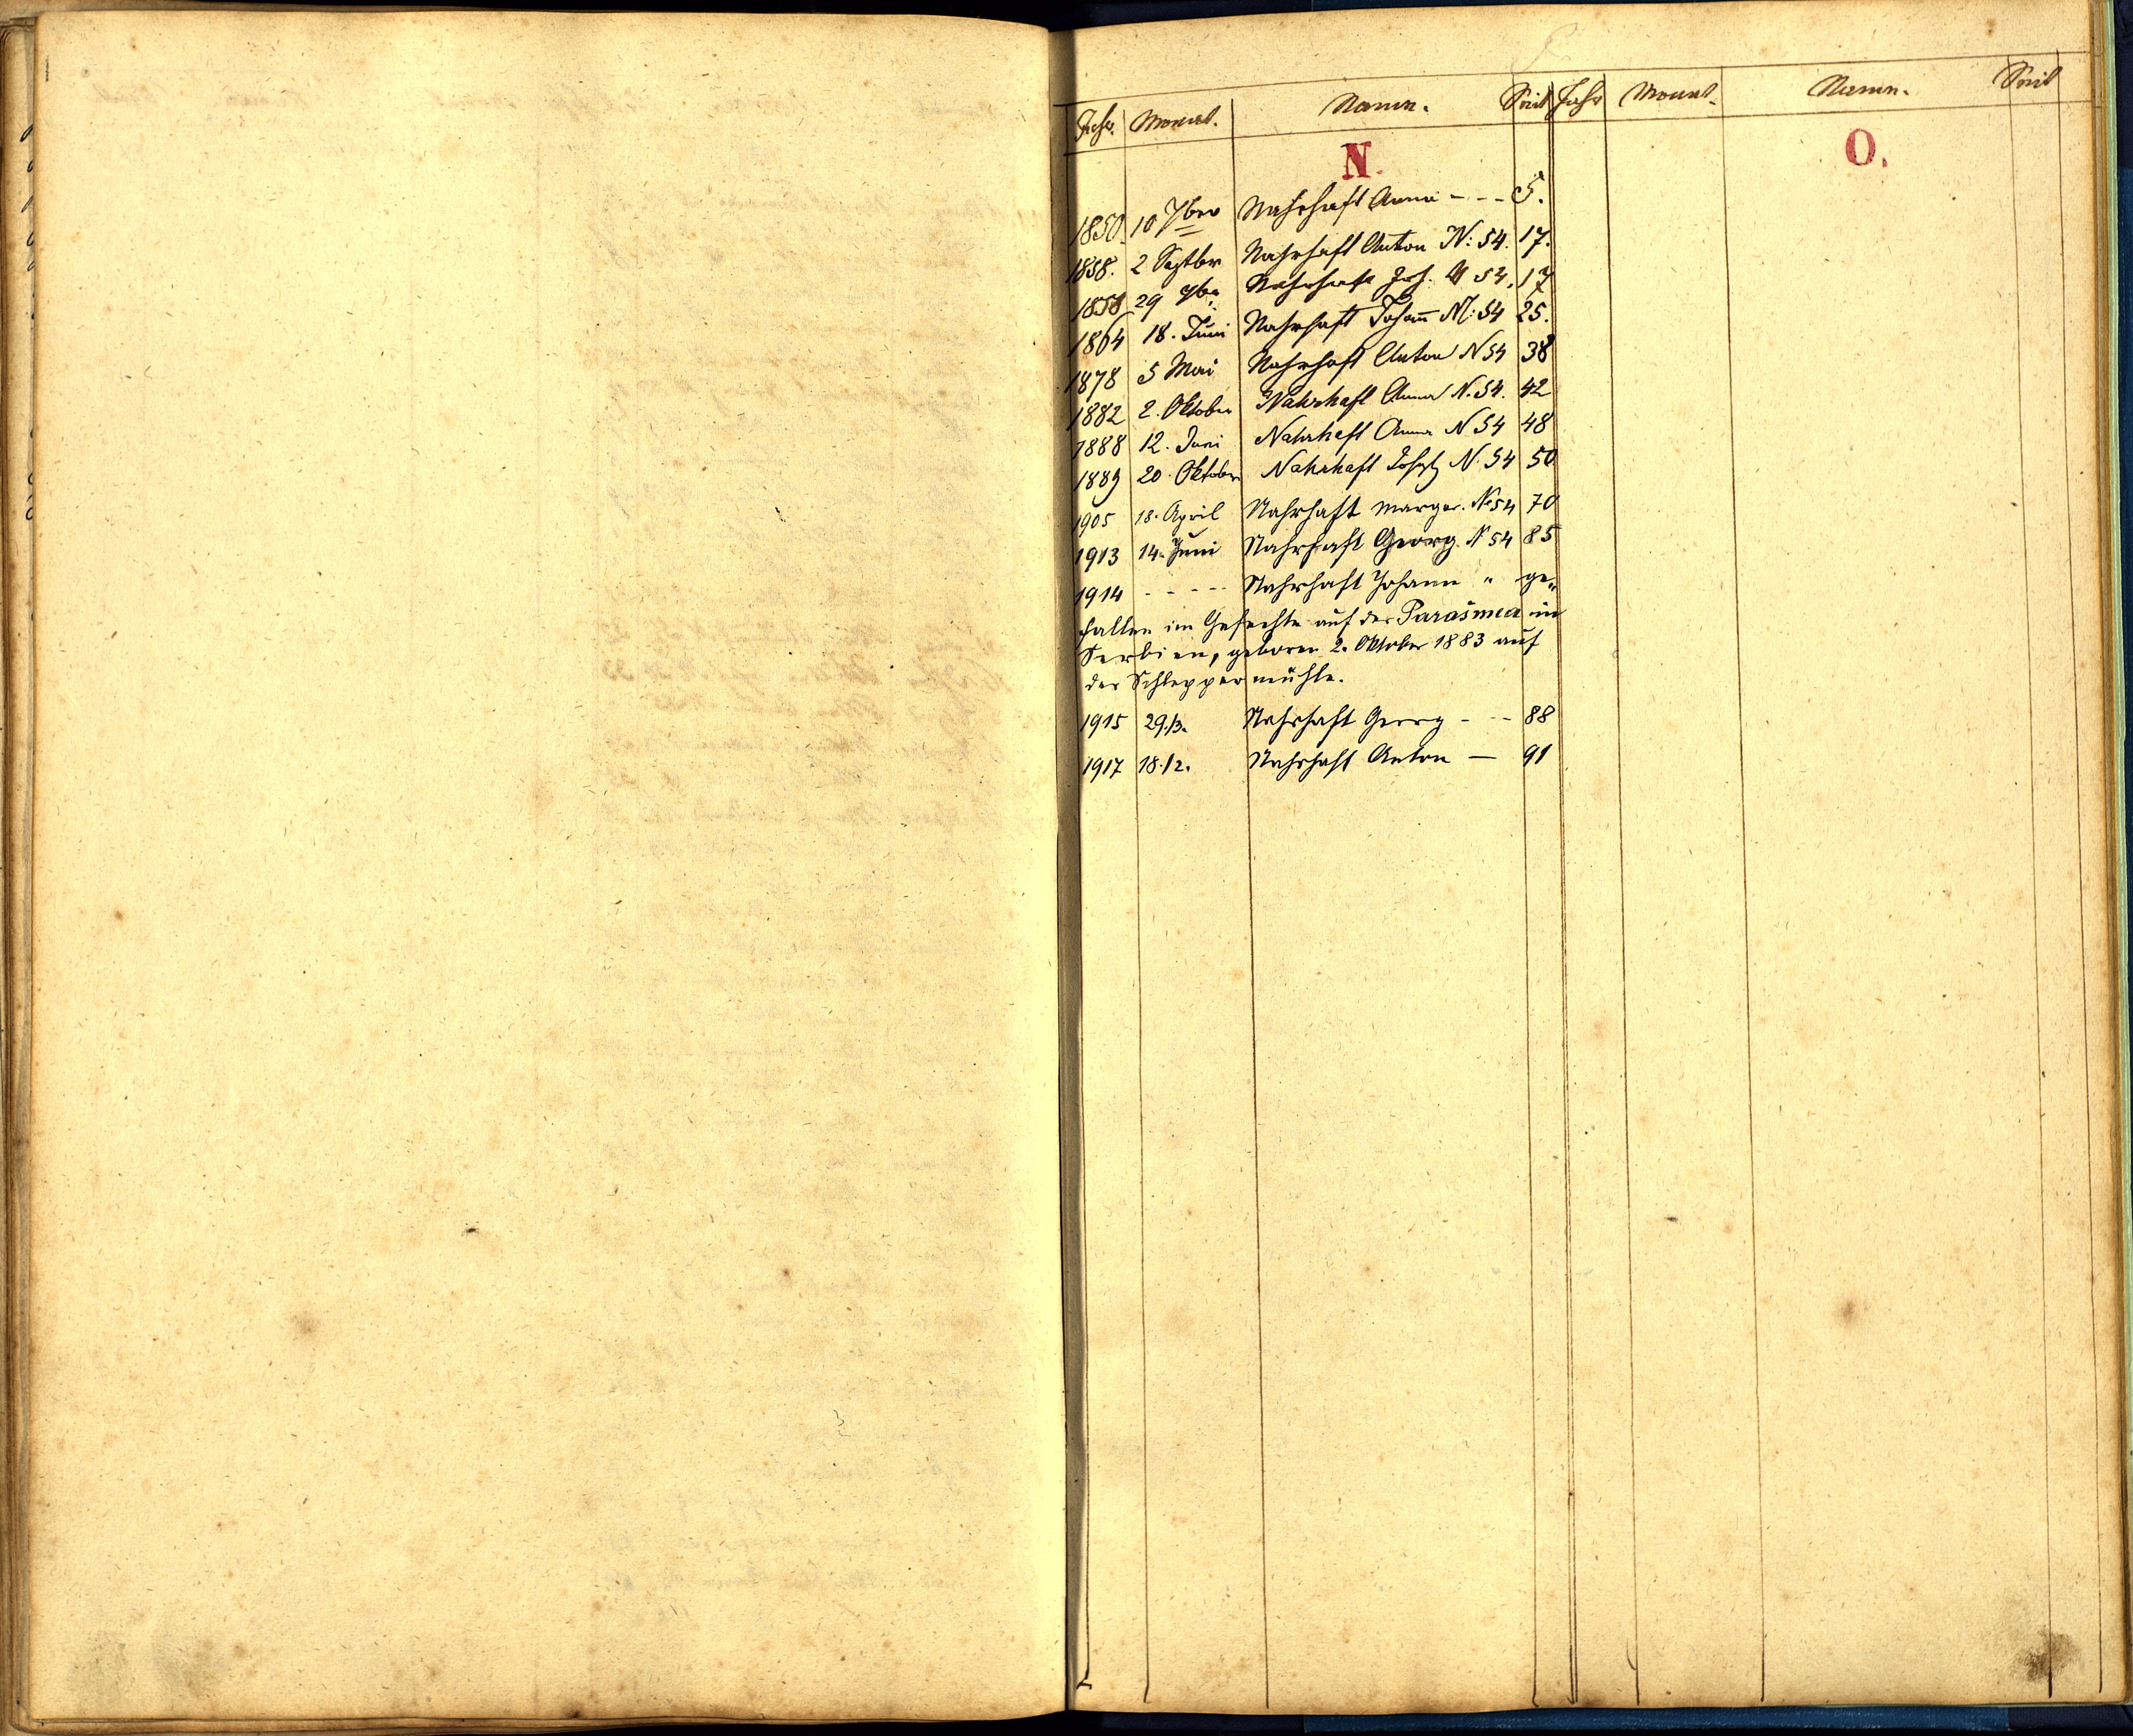 Jahr. Monat. Namen. Seit Jahr Monat. Namen. Seit
N. O.
1850. 10 7ber Nahrhaft Anna - - - 5.
1858. 2 Septbr Nahrhaft Anton N: 54. 17.
1858 29 7be Nahrhaft Joh. N 54. 17
1864 18. Juni Nahrhaft Johann N: 54 25.
1878 5 Mai Nahrhaft Anton N 54 38
1882 2. Oktober Nahrhaft Anna N. 54. 42
1888 12. Juni Nahrhaft Anna N 54 48
1889 20. Oktober Nahrhaft Josef N. 54 50
1905 18. April Nahrhaft Margar. No 54 70
1913 14. Juni Nahrhaft Georg N 54 85
1914 - - - - - Nahrhaft Johann " ge„
fallen im Gefechte auf der Parašnica in
Serbien, geboren 2. Oktober 1883 auf
der Schleppermühle.
1915 29./3. Nahrhaft Georg - - - 88
1917 18./2. Nahrhaft Anton — 91